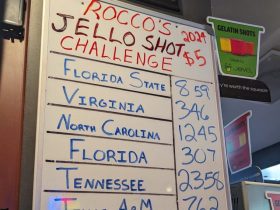 ROCCO'S
JELLO SHOT 2024
CHALLENGE $5
FLORIDA STATE 859
VIRGINIA 346
NORTH CAROLINA 1245
FLORIDA 307
TENNESSEE 2358
TEXAS A&M 762
GELATIN SHOTS
JEVO